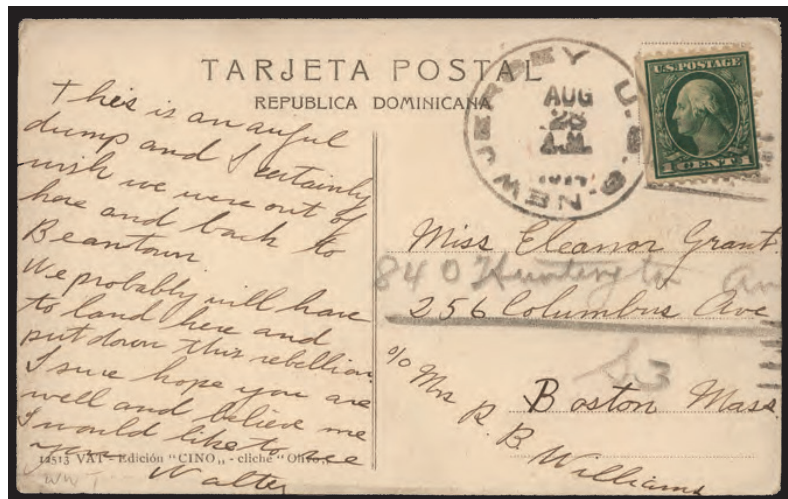 TARJETA POSTAL
REPUBLICA DOMINICANA
This is an awful
dump and I certainly
wish we were out of
here and back to
Beantown.
We probably will have
to land here and
put down this rebellion.
I sure hope you are
well and believe me
I would like to see
you
Walter
12513 VAT - Edición "CINO„ - cliché "Olivo„
NEW JERSEY U.S.S.
AUG
28
A.M.
U.S. POSTAGE
1 CENT 1
Miss Eleanor Grant.
840 Huntington
256 Columbus Ave
Boston Mass.
c/o Mrs
R. B
Williams